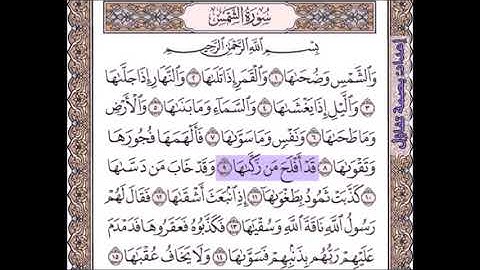 سُورَةُ الشَّمْسِ
بِسْمِ اللَّهِ الرَّحْمَٰنِ الرَّحِيمِ
وَالشَّمْسِ وَضُحَىٰهَا ۝١ وَالْقَمَرِ إِذَا تَلَىٰهَا ۝٢ وَالنَّهَارِ إِذَا جَلَّىٰهَا
۝٣ وَالَّيْلِ إِذَا يَغْشَىٰهَا ۝٤ وَالسَّمَاءِ وَمَا بَنَىٰهَا ۝٥ وَالْأَرْضِ
وَمَا طَحَىٰهَا ۝٦ وَنَفْسٍ وَمَا سَوَّىٰهَا ۝٧ فَأَلْهَمَهَا فُجُورَهَا
وَتَقْوَىٰهَا ۝٨ قَدْ أَفْلَحَ مَن زَكَّىٰهَا ۝٩ وَقَدْ خَابَ مَن دَسَّىٰهَا
۝١٠ كَذَّبَتْ ثَمُودُ بِطَغْوَىٰهَا ۝١١ إِذِ انبَعَثَ أَشْقَىٰهَا ۝١٢ فَقَالَ لَهُمْ
رَسُولُ اللَّهِ نَاقَةَ اللَّهِ وَسُقْيَٰهَا ۝١٣ فَكَذَّبُوهُ فَعَقَرُوهَا فَدَمْدَمَ
عَلَيْهِمْ رَبُّهُم بِذَنبِهِمْ فَسَوَّىٰهَا ۝١٤ وَلَا يَخَافُ عُقْبَٰهَا ۝١٥
إهداءات بصمة تفاؤل